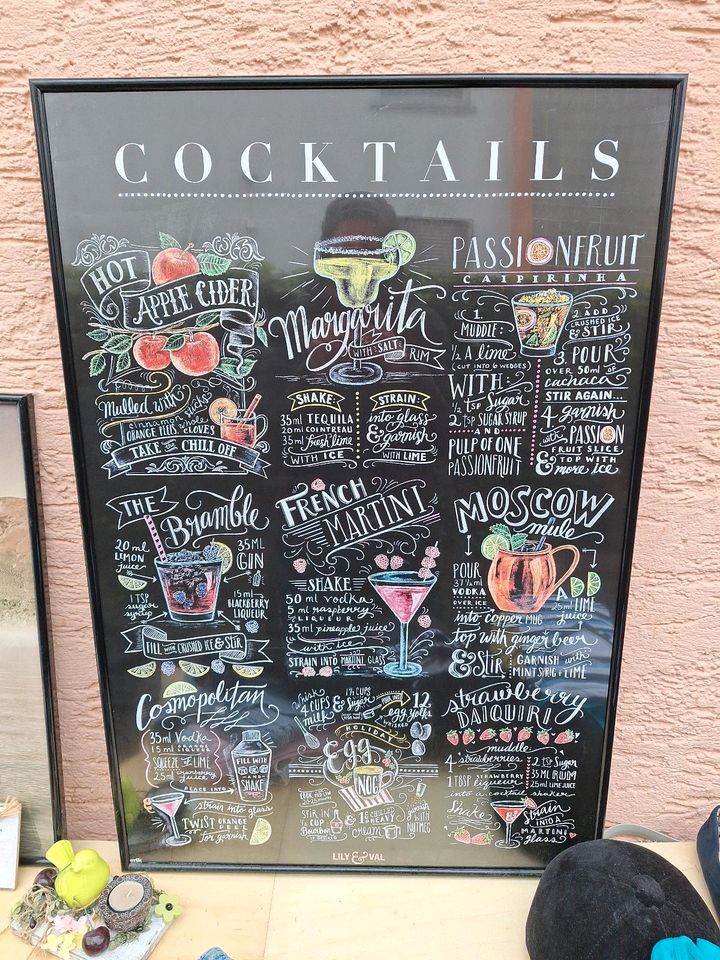 COCKTAILS
HOT
APPLE CIDER
Mulled with
cinnamon sticks
ORANGE PEEL & whole CLOVES
TAKE THE CHILL OFF
Margarita
WITH SALT RIM
SHAKE:
35ml TEQUILA
20ml COINTREAU
35ml fresh lime
WITH ICE
STRAIN:
into glass
& garnish
WITH LIME
PASSIONFRUIT
CAIPIRINHA
1.
MUDDLE:
1/2 A lime
(CUT INTO 6 WEDGES)
WITH:
1/2 tsp Sugar
2 tsp SUGAR SYRUP
AND
PULP OF ONE
PASSIONFRUIT
2. ADD
CRUSHED ICE
& STIR
3. POUR
OVER 50ml of
cachaca
STIR AGAIN...
4 garnish
with PASSION
FRUIT SLICE
& TOP WITH
more ice
THE
Bramble
20 ml
LEMON
juice
1 TSP
sugar
syrup
35ML
GIN
15ml
BLACKBERRY
LIQUEUR
FILL WITH CRUSHED ICE & STIR
FRENCH
MARTINI
SHAKE
50 ml vodka
5 ml raspberry
LIQUEUR
35ml pineapple juice
with ice
STRAIN INTO MARTINI GLASS
MOSCOW
mule
POUR
37 1/2 ml
VODKA
OVER ICE
ADD
25ml LIME
juice
into COPPER MUG
top with ginger beer
& STIR
GARNISH with
MINT SPRIG & LIME
Cosmopolitan
35ml Vodka
15ml
SQUEEZE OF LIME
25ml cranberry
juice
PLACE INTO
FILL WITH
ICE
AND
SHAKE
strain into glass
TWIST ORANGE
PEEL
for garnish
whisk
4 CUPS
milk
& 1 1/2 CUPS
Sugar
12
egg yolks
WHISKED
HOLIDAY
Egg
NOG
STIR IN
CUP
Bourbon
& 1 1/2 CHILLED
HEAVY
cream
WITH
NUTMEG
strawberry
DAIQUIRI
muddle
4 strawberries
1 TBSP STRAWBERRY
liqueur
2 tsp Sugar
35 ML RUM
25ml LIME JUICE
into a cocktail shaker
Shake &
Strain
INTO A
MARTINI
glass
LILY & VAL